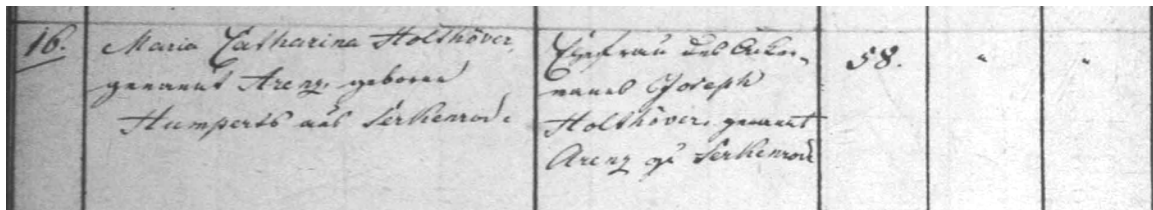 16.
Maria Catharina Holthöver,
genannt Arenz, geborne
Humperts aus Serkenrode
Ehefrau des Acker-
manns Joseph
Holthöver, genannt
Arenz zu Serkenrode
58.
"
"